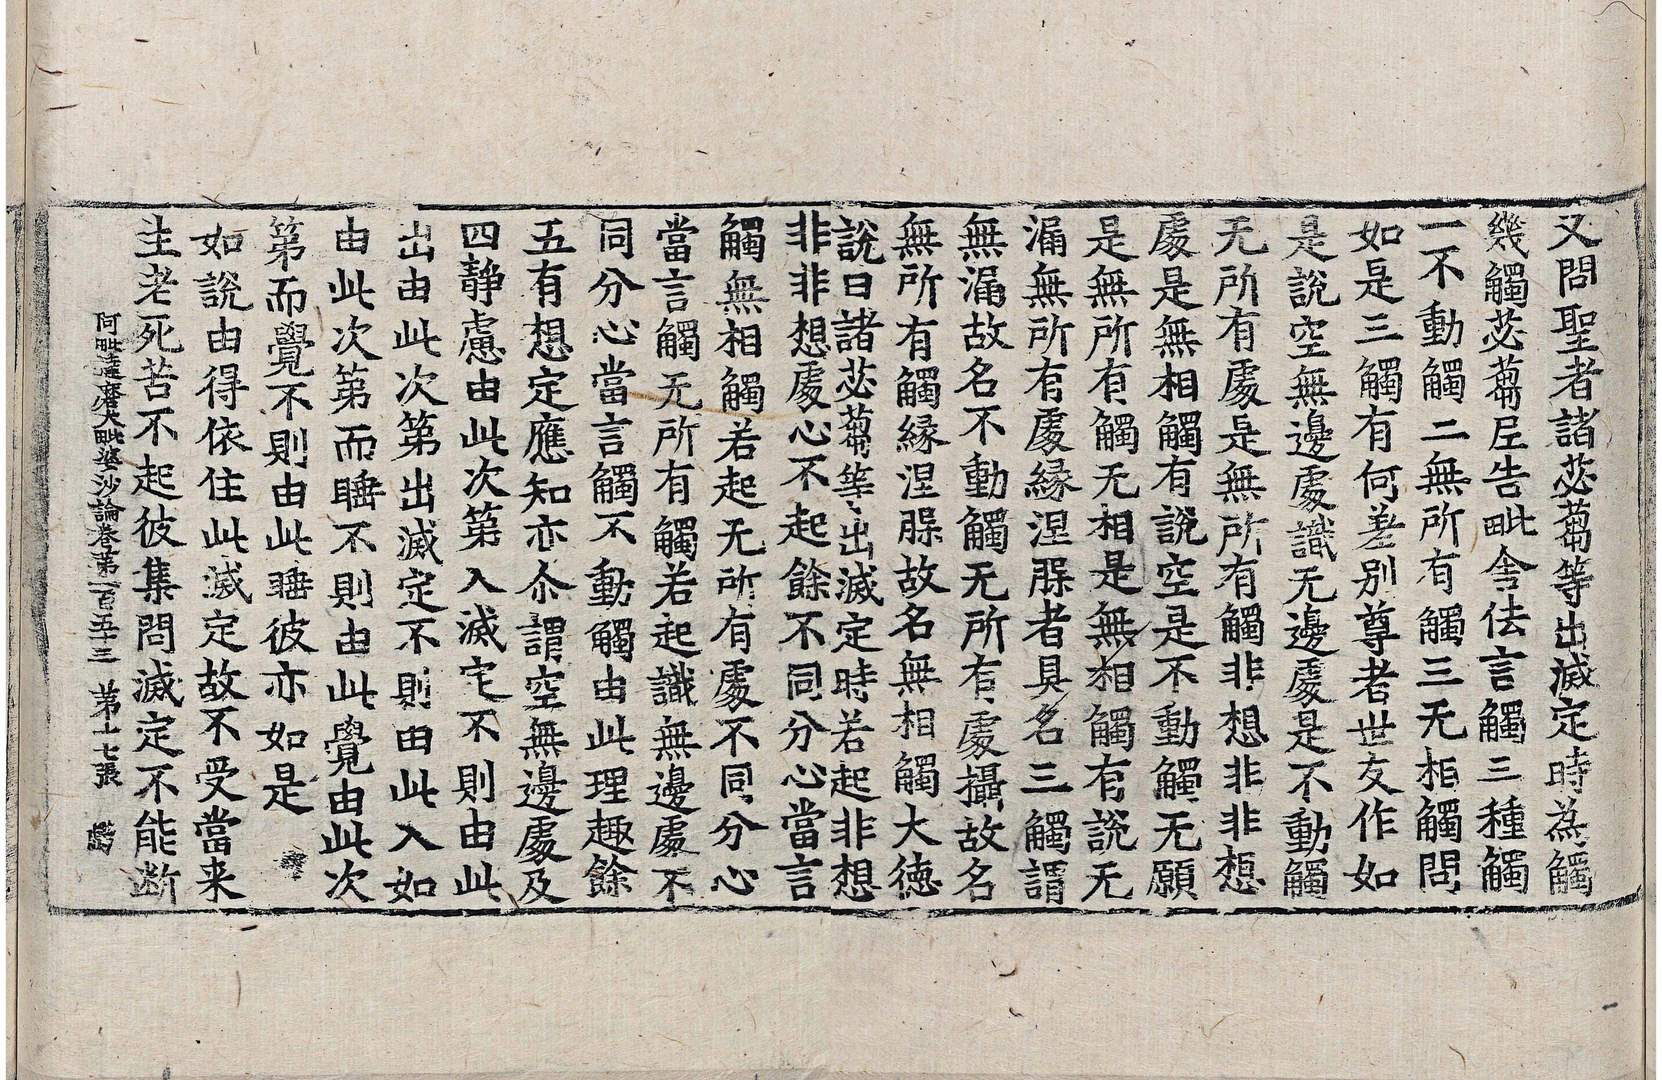 又問聖者諸苾蒭等出滅定時爲觸
幾觸苾蒭𡰱告毗舍佉言觸三種觸
一不動觸二無所有觸三无相觸問
如是三觸有何差別尊者世友作如
是說空無邊處識无邊處是不動觸
无所有處是無所有觸非想非非想
處是無相觸有說空是不動觸无願
是無所有觸无相是無相觸有說无
漏無所有處緣涅槃者具名三觸謂
無漏故名不動觸无所有處攝故名
無所有觸緣涅槃故名無相觸大德
說曰諸苾蒭等出滅定時若起非想
非非想處心不起餘不同分心當言
觸無相觸若起无所有處不同分心
當言觸无所有觸若起識無邊處不
同分心當言觸不動觸由此理趣餘
五有想定應知亦尒謂空無邊處及
四静慮由此次第入滅定不則由此
出由此次第出滅定不則由此入如
由此次第而睡不則由此覺由此次
第而覺不則由此睡彼亦如是
如說由得依住此滅定故不受當来
生老死苦不起彼集問滅定不能断
阿毗達磨大毗婆沙論卷第一百五十三 第十七張